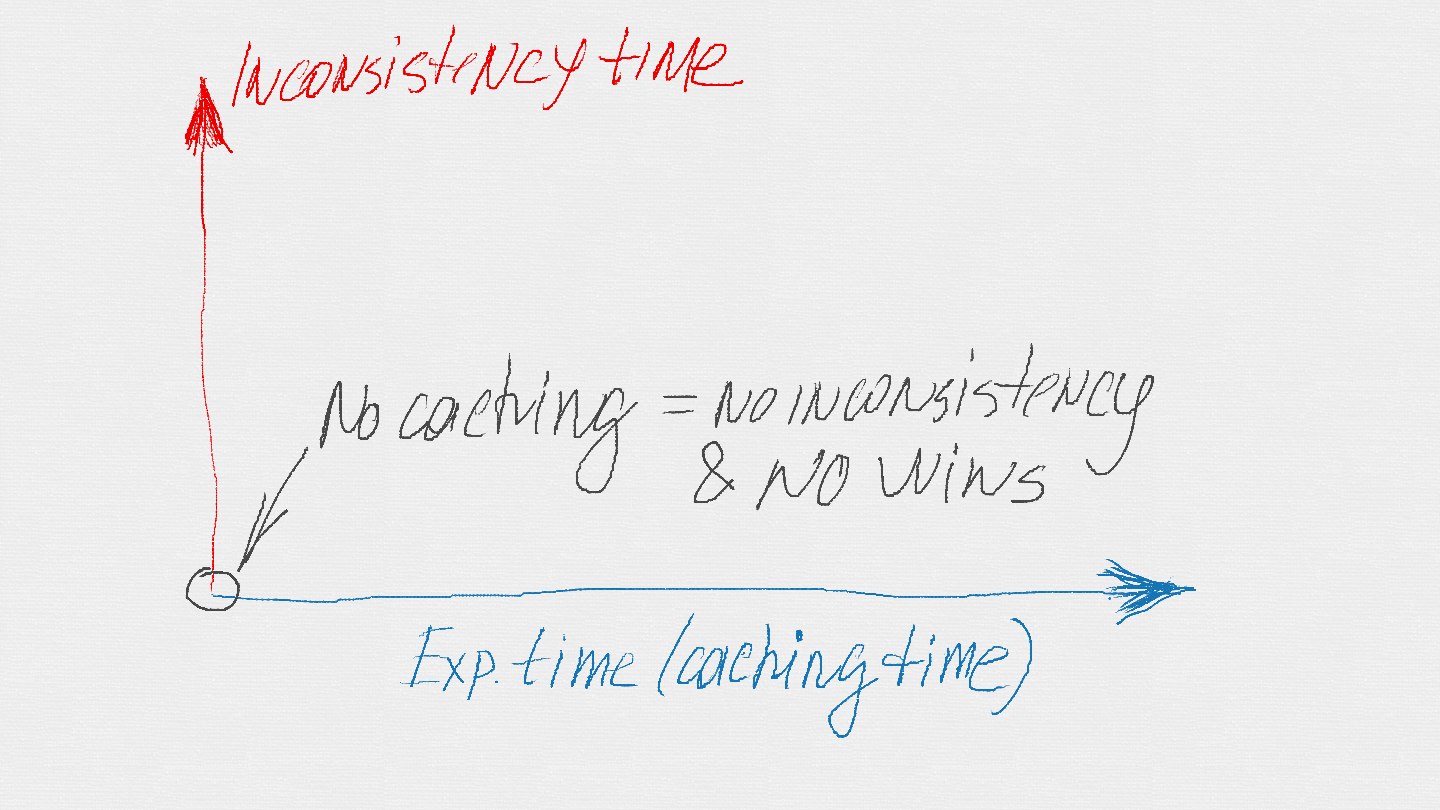 Inconsistency time
No caching = no inconsistency
& no wins
Exp. time (caching time)